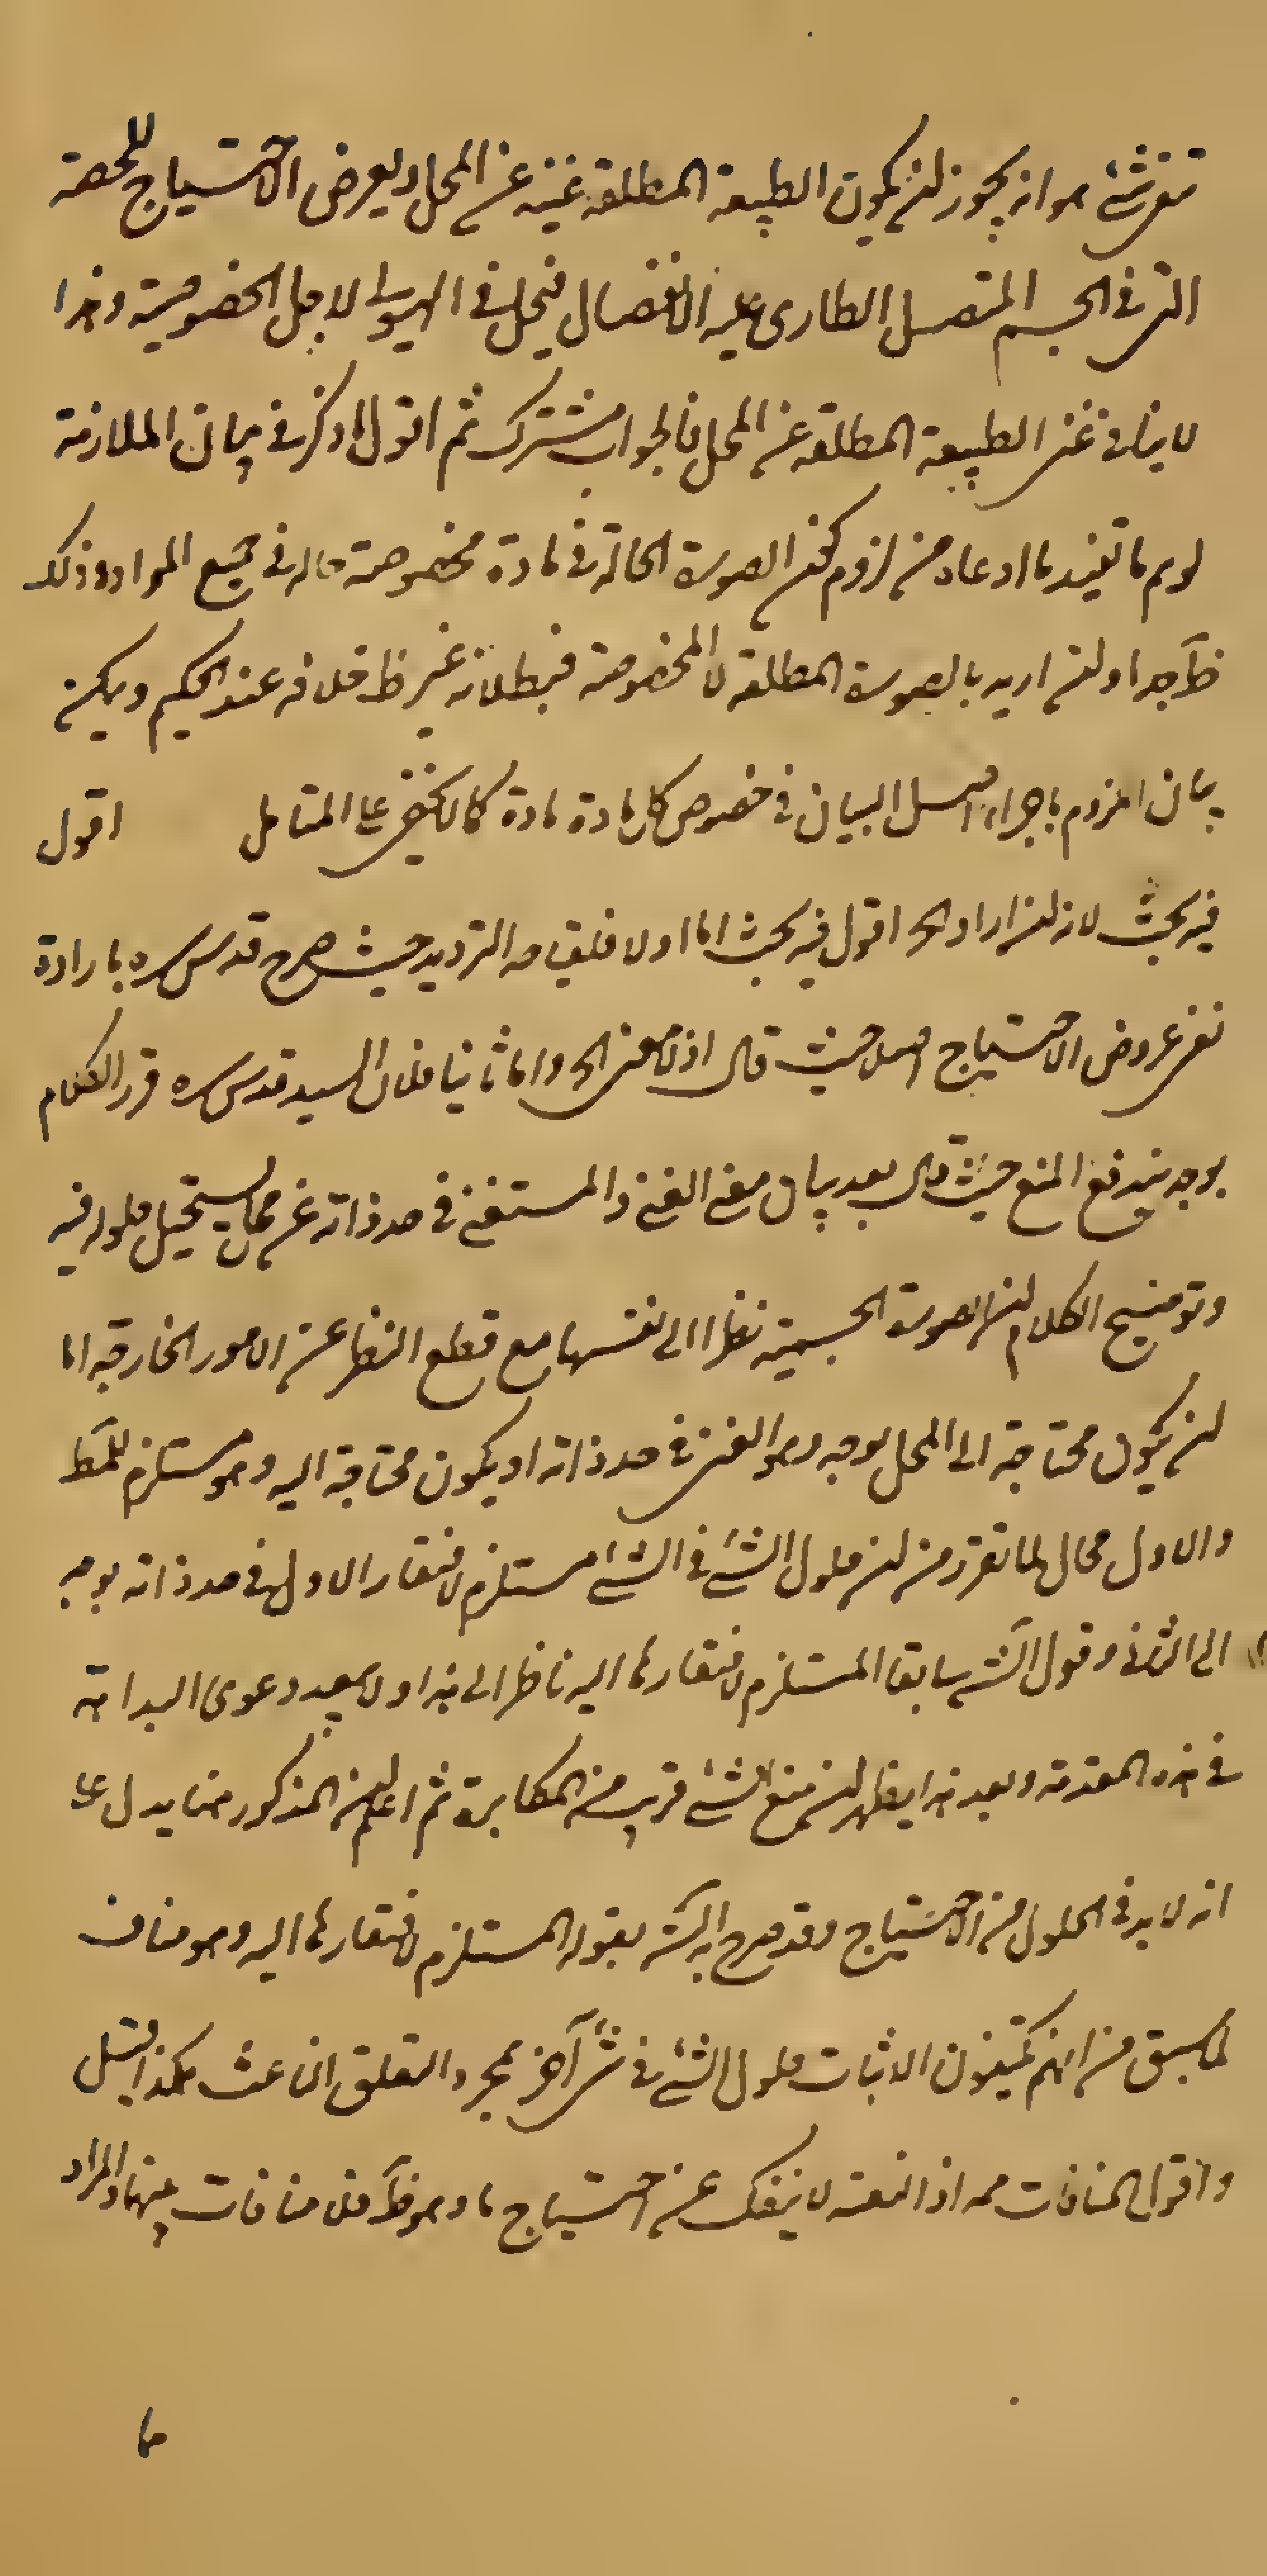 تفرشی هو انه يجوز ان يكون الطبيعة المطلقة غنية عن المحل ويعرض الاحتياج للحصة
التي في الجسم المتصل الطارى عليه الانفصال فيحل في الهيولى لاجل الخصوصية وهذا
لا ينافي غنى الطبيعة المطلقة عن المحل فالجواب مشترك ثم اقول ما ذكر في بيان الملازمة
لو تم ما تفيد ما ادعاه من لزوم كون الصورة الحالة في مادة مخصوصة حاله في جميع المواد وذلك
ظ جدا ولئن اريد بالصورة المطلقة لا المخصوصة فبطلانه غير ظ خلافه عند الحكيم ويمكن
بيان اللزوم باجراء اصل البيان في خصوص كل مادة مادة كما لا يخفى على المتامل اقول
فيه بحث لانه ان اراد الخ اقول فيه بحث اما اولا فلقيامه الترديد حيث صرح قدس سره بارادة
نفى عروض الاحتياج اصلا حيث قال اذ لا معنى الخ واما ثانيا فلان السيد قدس سره قرر الكلام
بوجه يندفع المنع حيث قال بعد بيان معنى الغنى والمستغنى في حد ذاته عن محل يستحيل حلوله فيه
وتوضيح الكلام ان الصورة الجسمية نظرا الى نفسها مع قطع النظر عن الامور الخارجة اما
ان يكون محتاجة الى المحل بوجه وهو الغنى في حد ذاته او يكون محتاجة اليه وهو مستلزم للمط
والاول محال لما تقرر من ان حلول الشئ في الشئ مستلزم لافتقار الاول في حد ذاته بوجه
الى الثاني وقول الش سابقا المستلزم لافتقارها اليه ناظر الى هذا ولا يبعد دعوى البداهة
في هذه المقدمة وبعد هذا يظهر ان منع الشئ قريب من المكابرة ثم اعلم ان المذكور هنا يدل على
انه لا بد في الحلول من الاحتياج وقد صرح به الش بقوله المستلزم لافتقارها اليه وهو مناف
لما سبق من انهم يكتفون لاثبات حلول الشئ في شئ آخر بمجرد التعلق الناعت هكذا قيل
واقول المنافات مم اذ الناعتية لا ينفك عن احتياج ما وهو ظ فلا منافات بينهما والمراد
ما